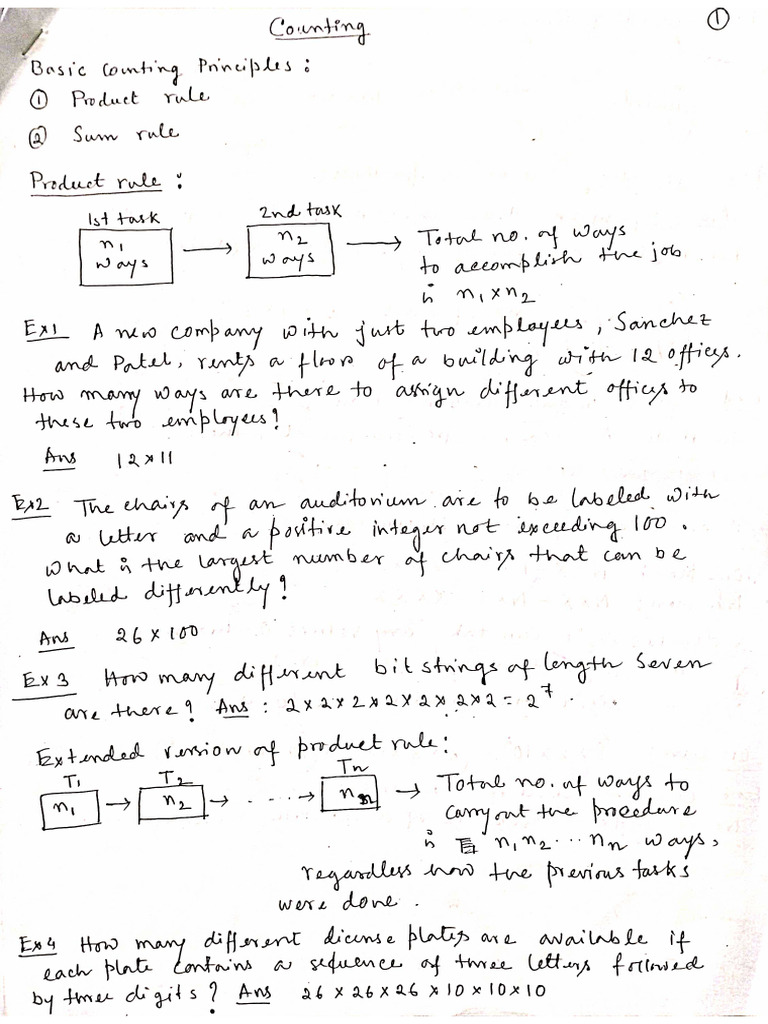 Counting
①
Basic Counting Principles:
① Product rule
② Sum rule
Product rule:
1st task 2nd task
n₁ ways → n₂ ways → Total no. of ways
to accomplish the job
is n₁×n₂
Ex1 A new company with just two employees, Sanchez
and Patel, rents a floor of a building with 12 offices.
How many ways are there to assign different offices to
these two employees?
Ans 12×11
Ex2 The chairs of an auditorium are to be labeled with
a letter and a positive integer not exceeding 100.
What is the largest number of chairs that can be
labeled differently?
Ans 26×100
Ex 3 How many different bit strings of length seven
are there? Ans: 2×2×2×2×2×2×2=2⁷.
Extended version of product rule:
T₁ T₂ Tn
n₁ → n₂ → ....→ nn → Total no. of ways to
carry out the procedure
is n₁n₂...nn ways,
regardless how the previous tasks
were done.
Ex4 How many different license plates are available if
each plate contains a sequence of three letters followed
by three digits? Ans 26×26×26×10×10×10